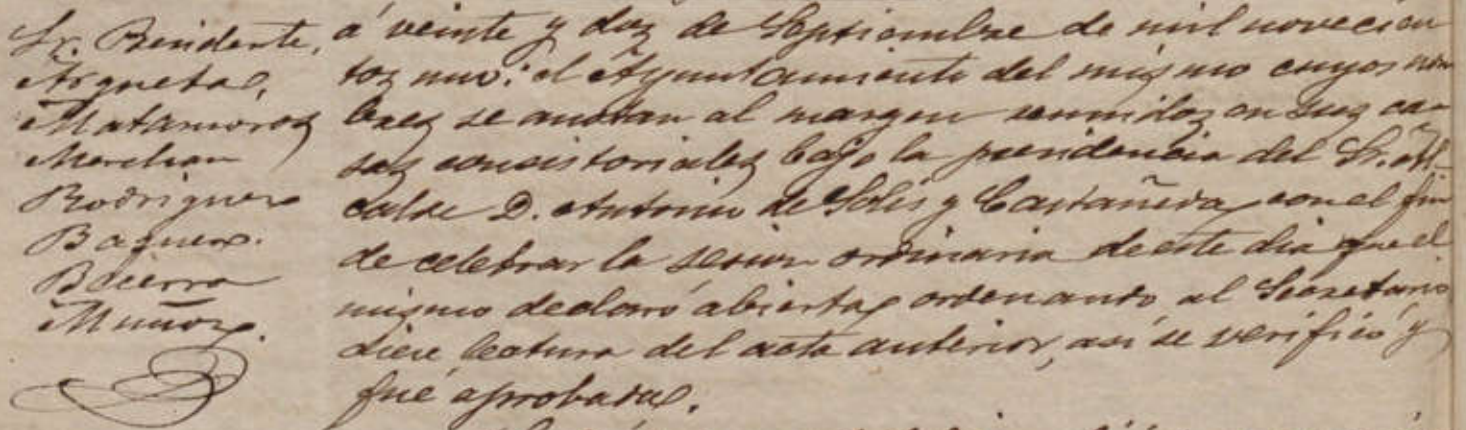 Sr. Presidente.
Argueta.
Matamoros
Merchan
Rodriguez
Baquero.
Becerra
Muñoz.
á veinte y dos de Septiembre de mil novecien
tos nuv: el Ayuntamiento del mismo cuyos nom
bres se anotan al margen reunidos en sus ca-
sas consistoriales bajo la presidencia del Sr. Al-
calde D. Antonio de Solís y Castañeda, con el fin
de celebrar la sesion ordinaria de este dia que el
mismo declaró abierta, ordenando al Secretario
diese lectura del acta anterior, asi se verificó y
fué aprobada.